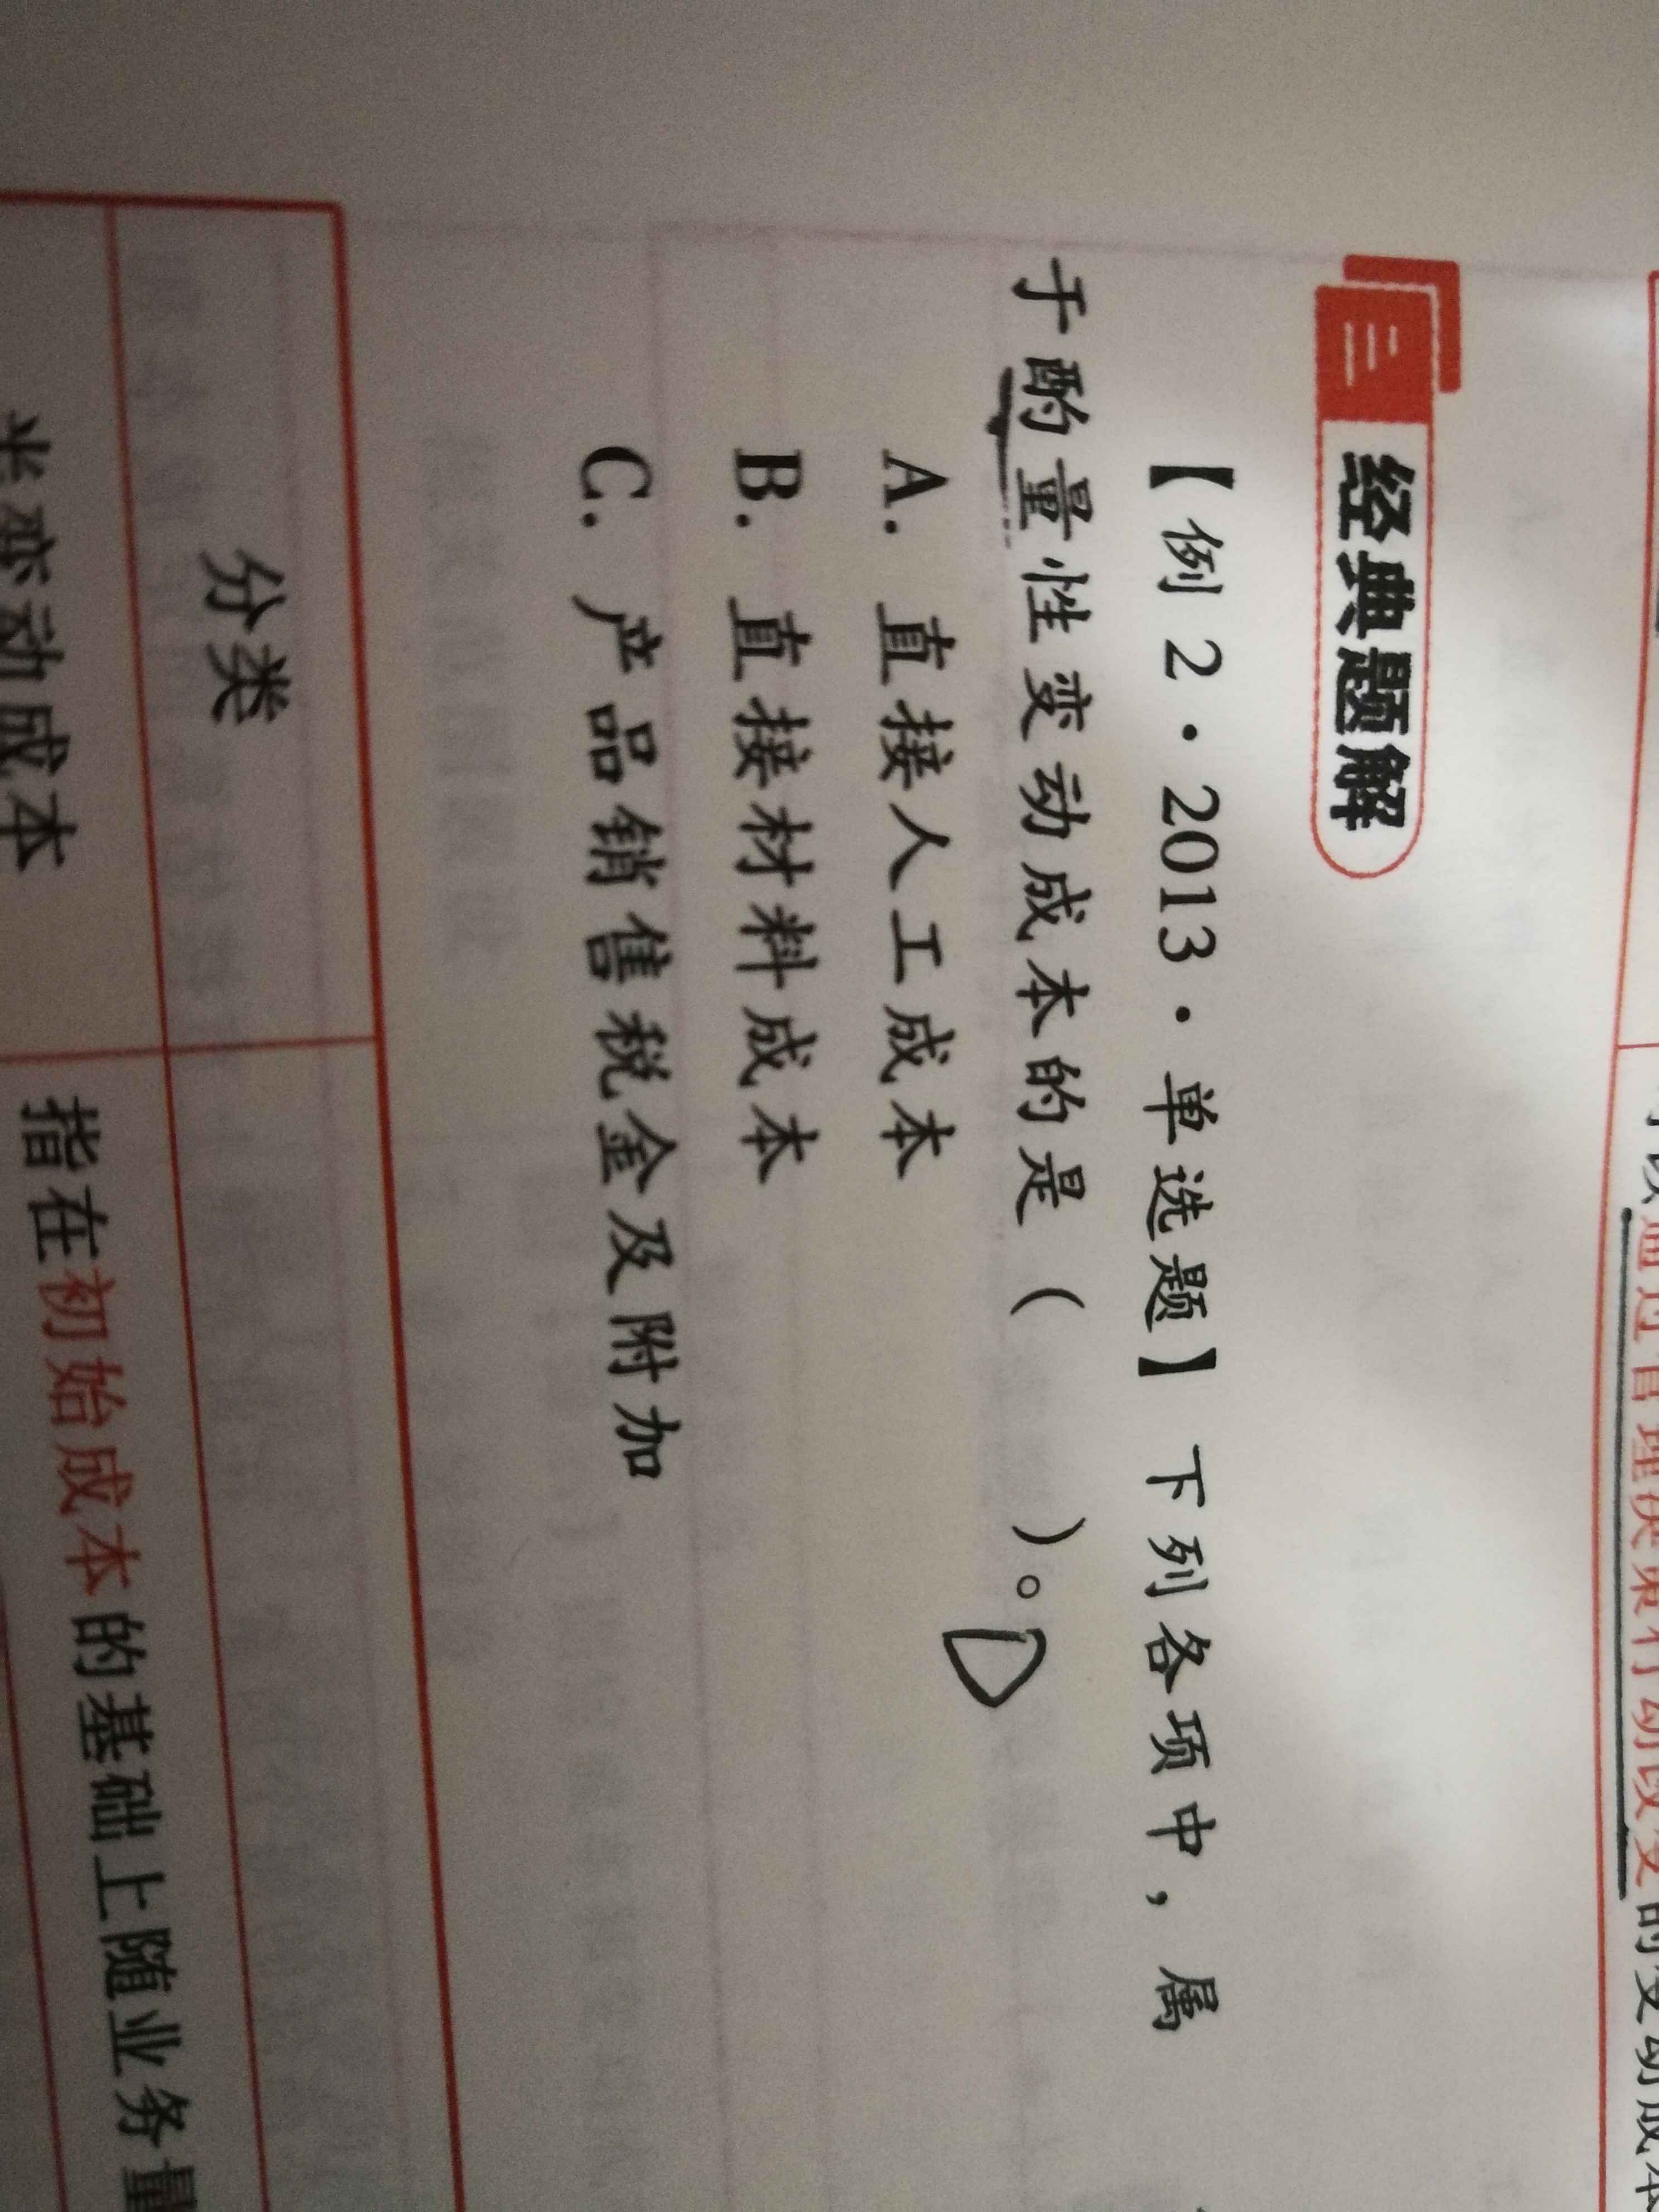 可以通过管理决策行动改变的变动成本
经典题解
【例2·2013·单选题】下列各项中，属
于酌量性变动成本的是（ ）。D
A. 直接人工成本
B. 直接材料成本
C. 产品销售税金及附加
分类
半变动成本
指在初始成本的基础上随业务量